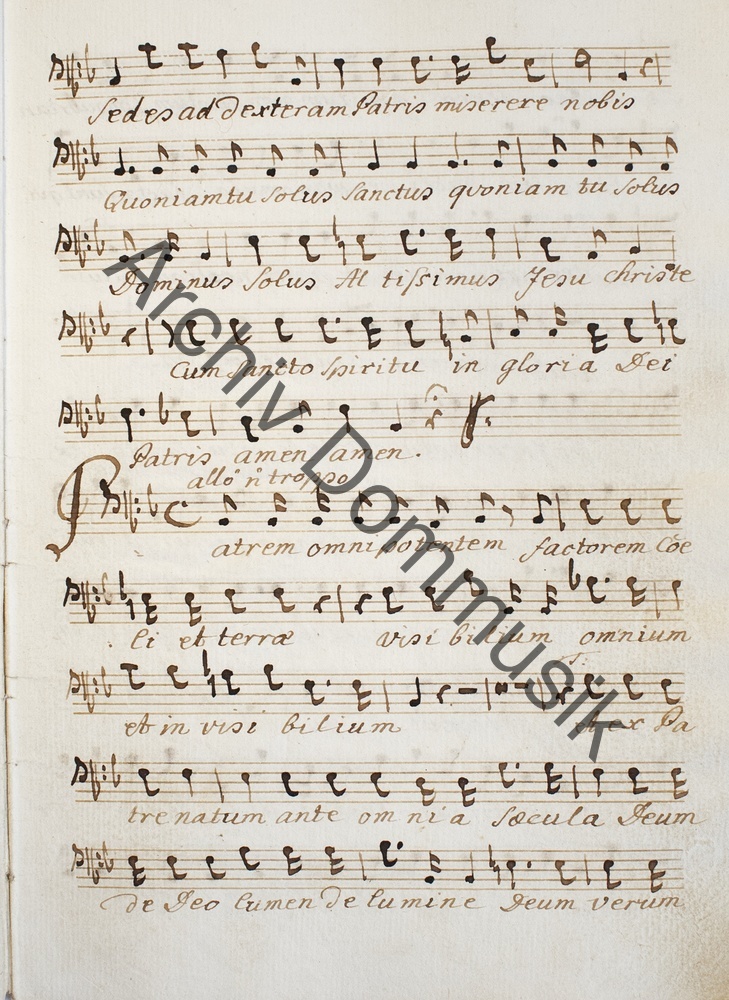 Sedes ad dexteram Patris miserere nobis
Quoniam tu solus sanctus quoniam tu solus
Dominus solus Al tissimus Jesu christe
Cum sancto spiritu in gloria Dei
Patris amen amen.
allo n troppo
Patrem omnipotentem factorem Cöe
li et terræ visi bilium omnium
et in visi bilium et ex Pa
tre natum ante om ni a sæcula Deum
de Deo lumen de lumine Deum verum
Archiv Dommusik